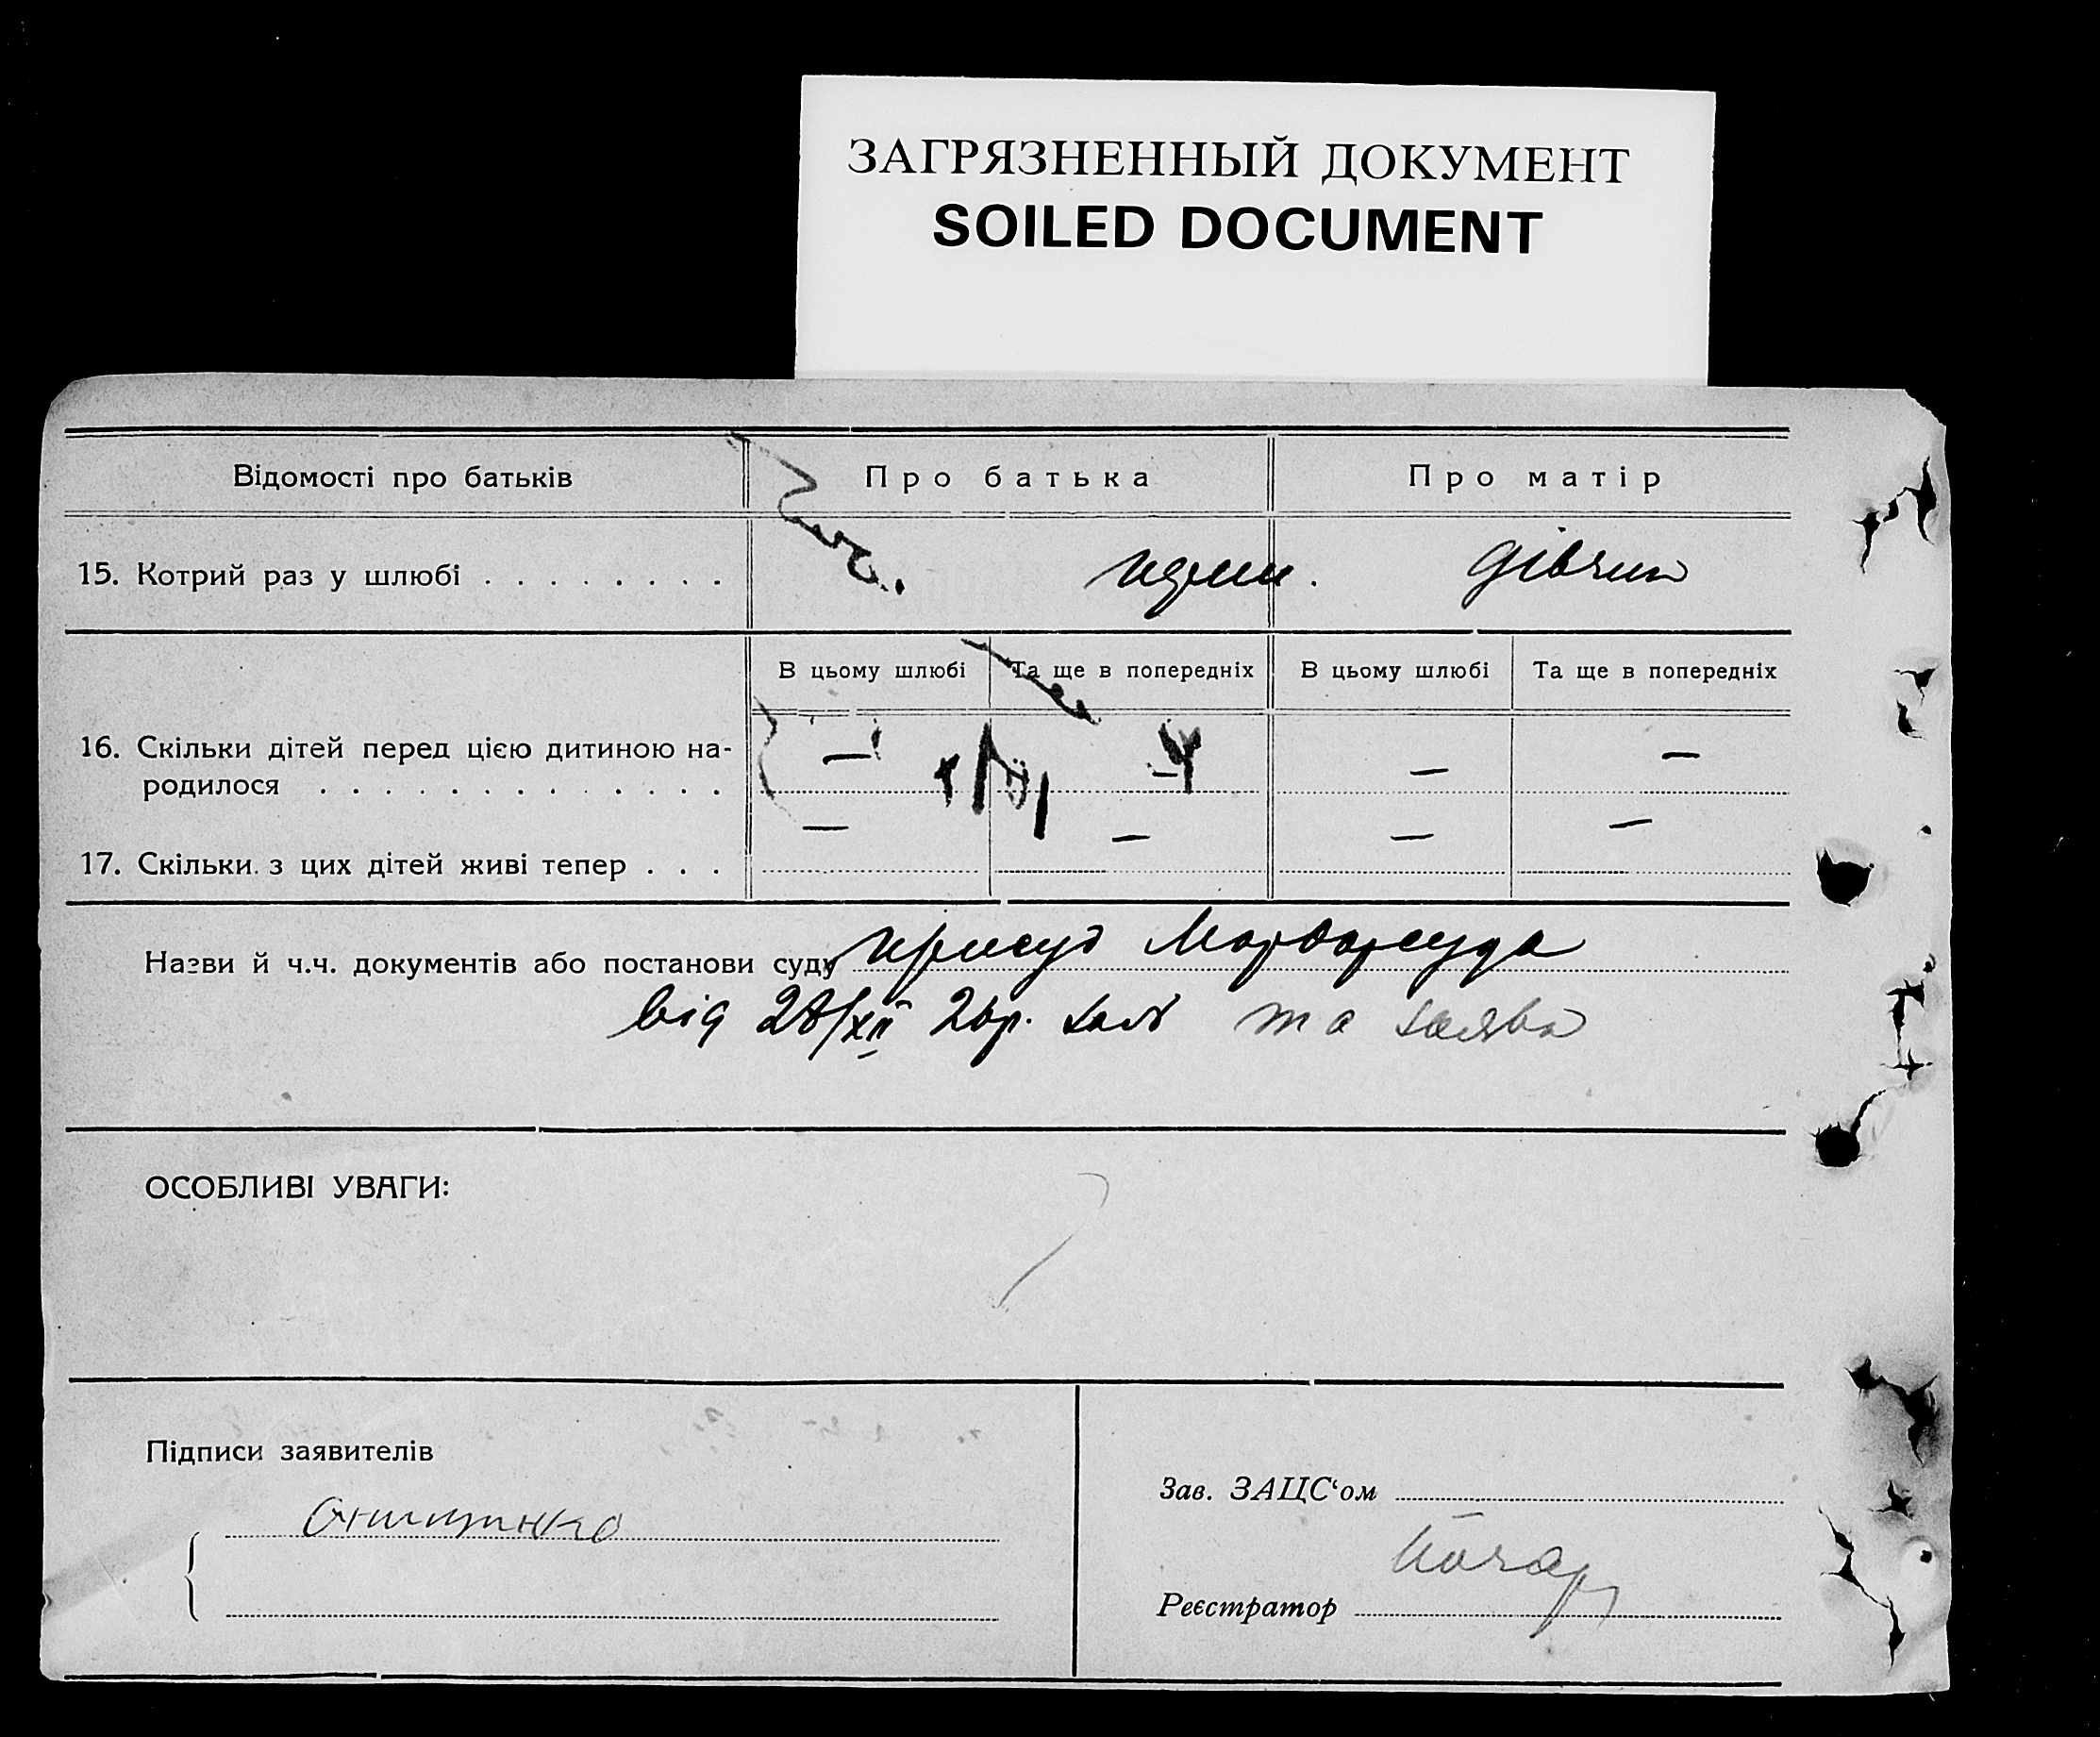 ЗАГРЯЗНЕННЫЙ ДОКУМЕНТ
SOILED DOCUMENT
Відомості про батьків Про батька Про матір
15. Котрий раз у шлюбі . . . . . . . . дівчин
В цьому шлюбі Та ще в попередніх В цьому шлюбі Та ще в попередніх
16. Скільки дітей перед цією дитиною на- — — —
родилося . . . . . . . . . . . . .
17. Скільки з цих дітей живі тепер . . . — — — —
Назви й ч.ч. документів або постанови суду присуд
від 28/XII 26р. та заява
ОСОБЛИВІ УВАГИ:
Підписи заявителів
Зав. ЗАЦС‘ом
Реєстратор